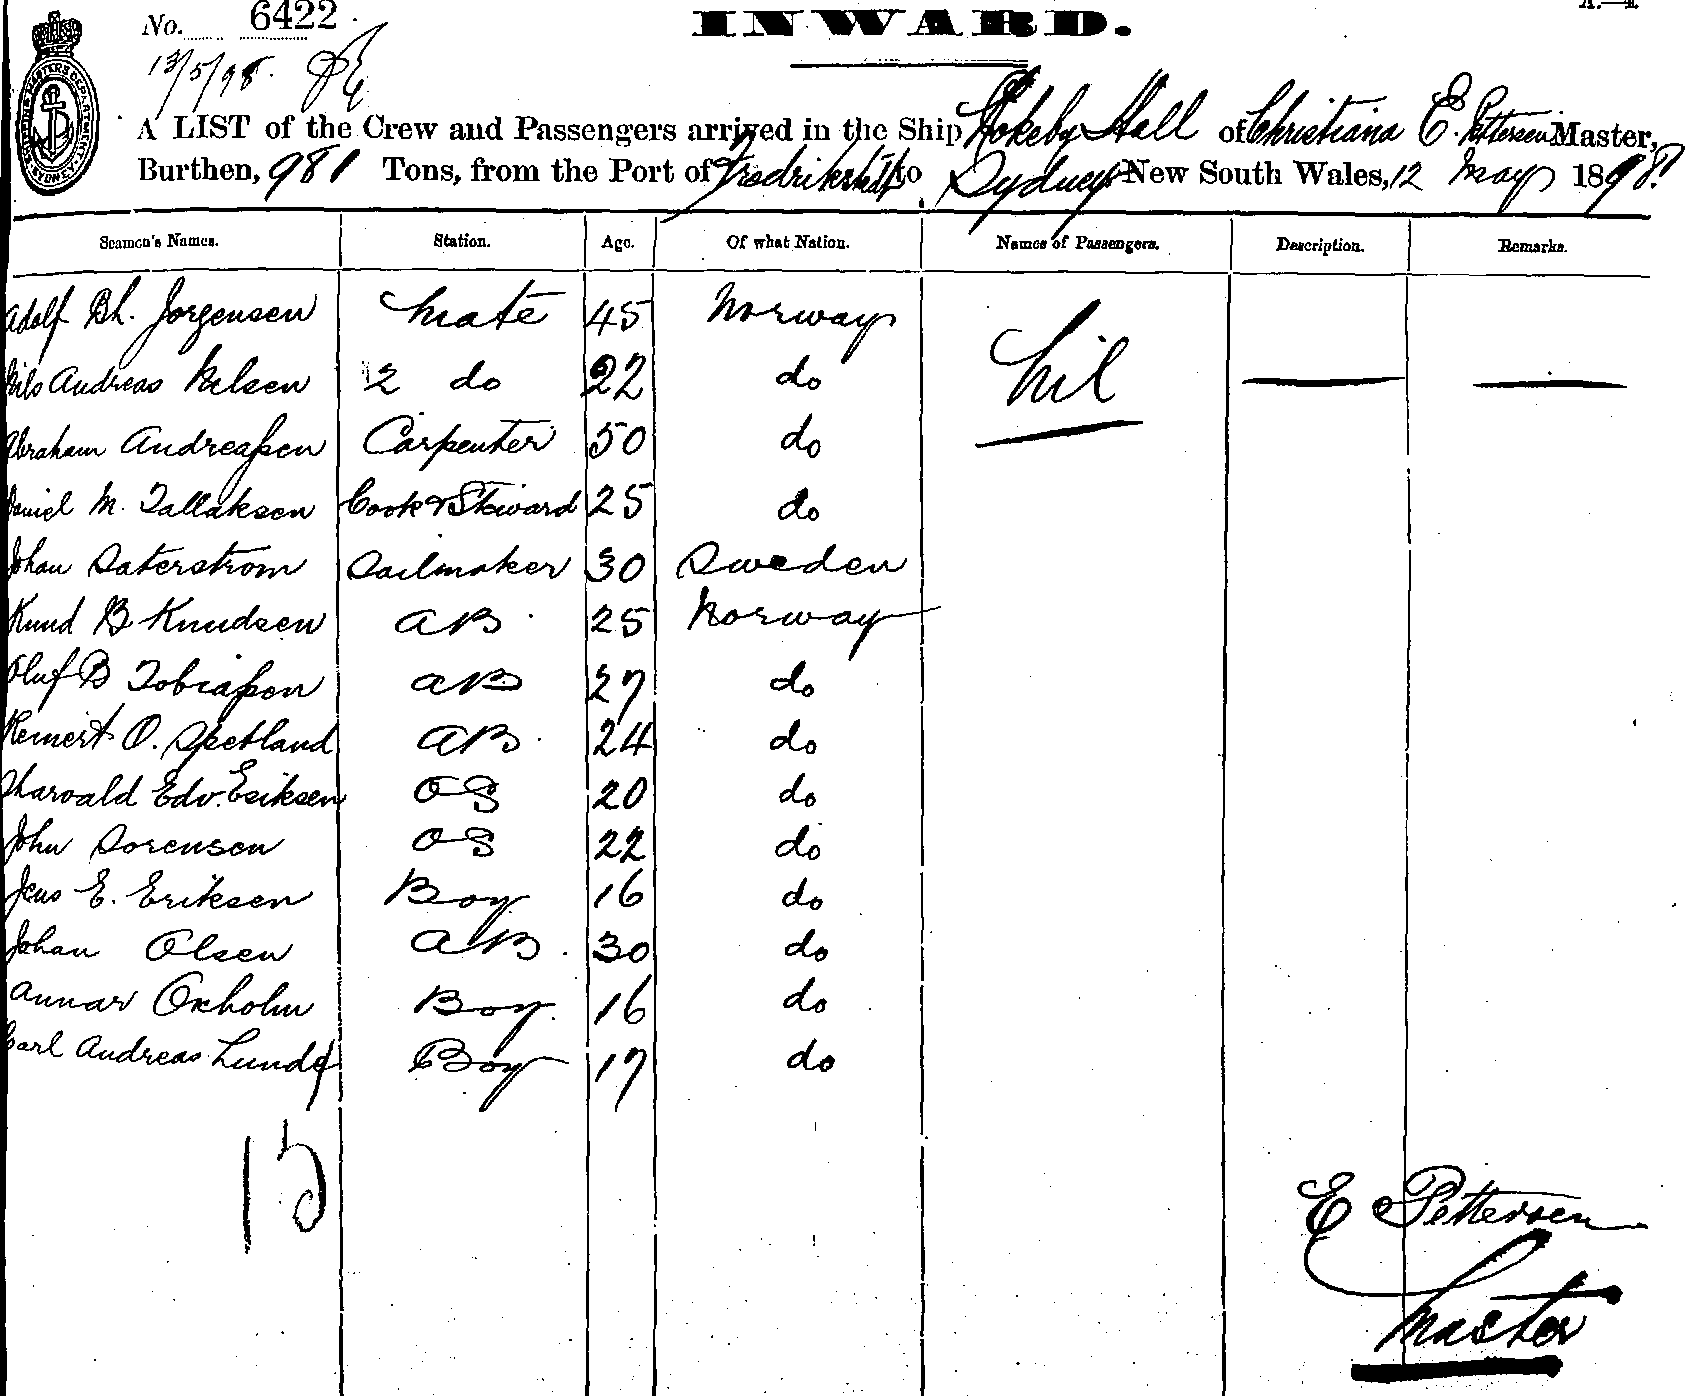 No. 6422
INWARD.
13/5/98.
A LIST of the Crew and Passengers arrived in the Ship Rokeby Hall of Christiana E. Pettersen Master,
Burthen, 981 Tons, from the Port of Fredrikstad to Sydney New South Wales, 12 May 1898.
Seamen's Names. Station. Age. Of what Nation. Names of Passengers. Description. Remarks.
Adolf Bh. Jorgensen Mate 45 Norway Nil
Nils Andreas Nelsen 2 do 22 do
Abraham Andreassen Carpenter 50 do
Daniel M. Tallaksen Cook & Steward 25 do
Johan Saterstrom Sailmaker 30 Sweden
Knud B Knudsen AB 25 Norway
Oluf B Tobiassen AB 27 do
Reinert O. Spetland AB 24 do
Tharvald Edv. Eriksen OS 20 do
John Sorensen OS 22 do
Jens E. Eriksen Boy 16 do
Johan Olsen AB 30 do
Annar Oxholm Boy 16 do
Carl Andreas Lund Boy 17 do
15
E Pettersen
Master